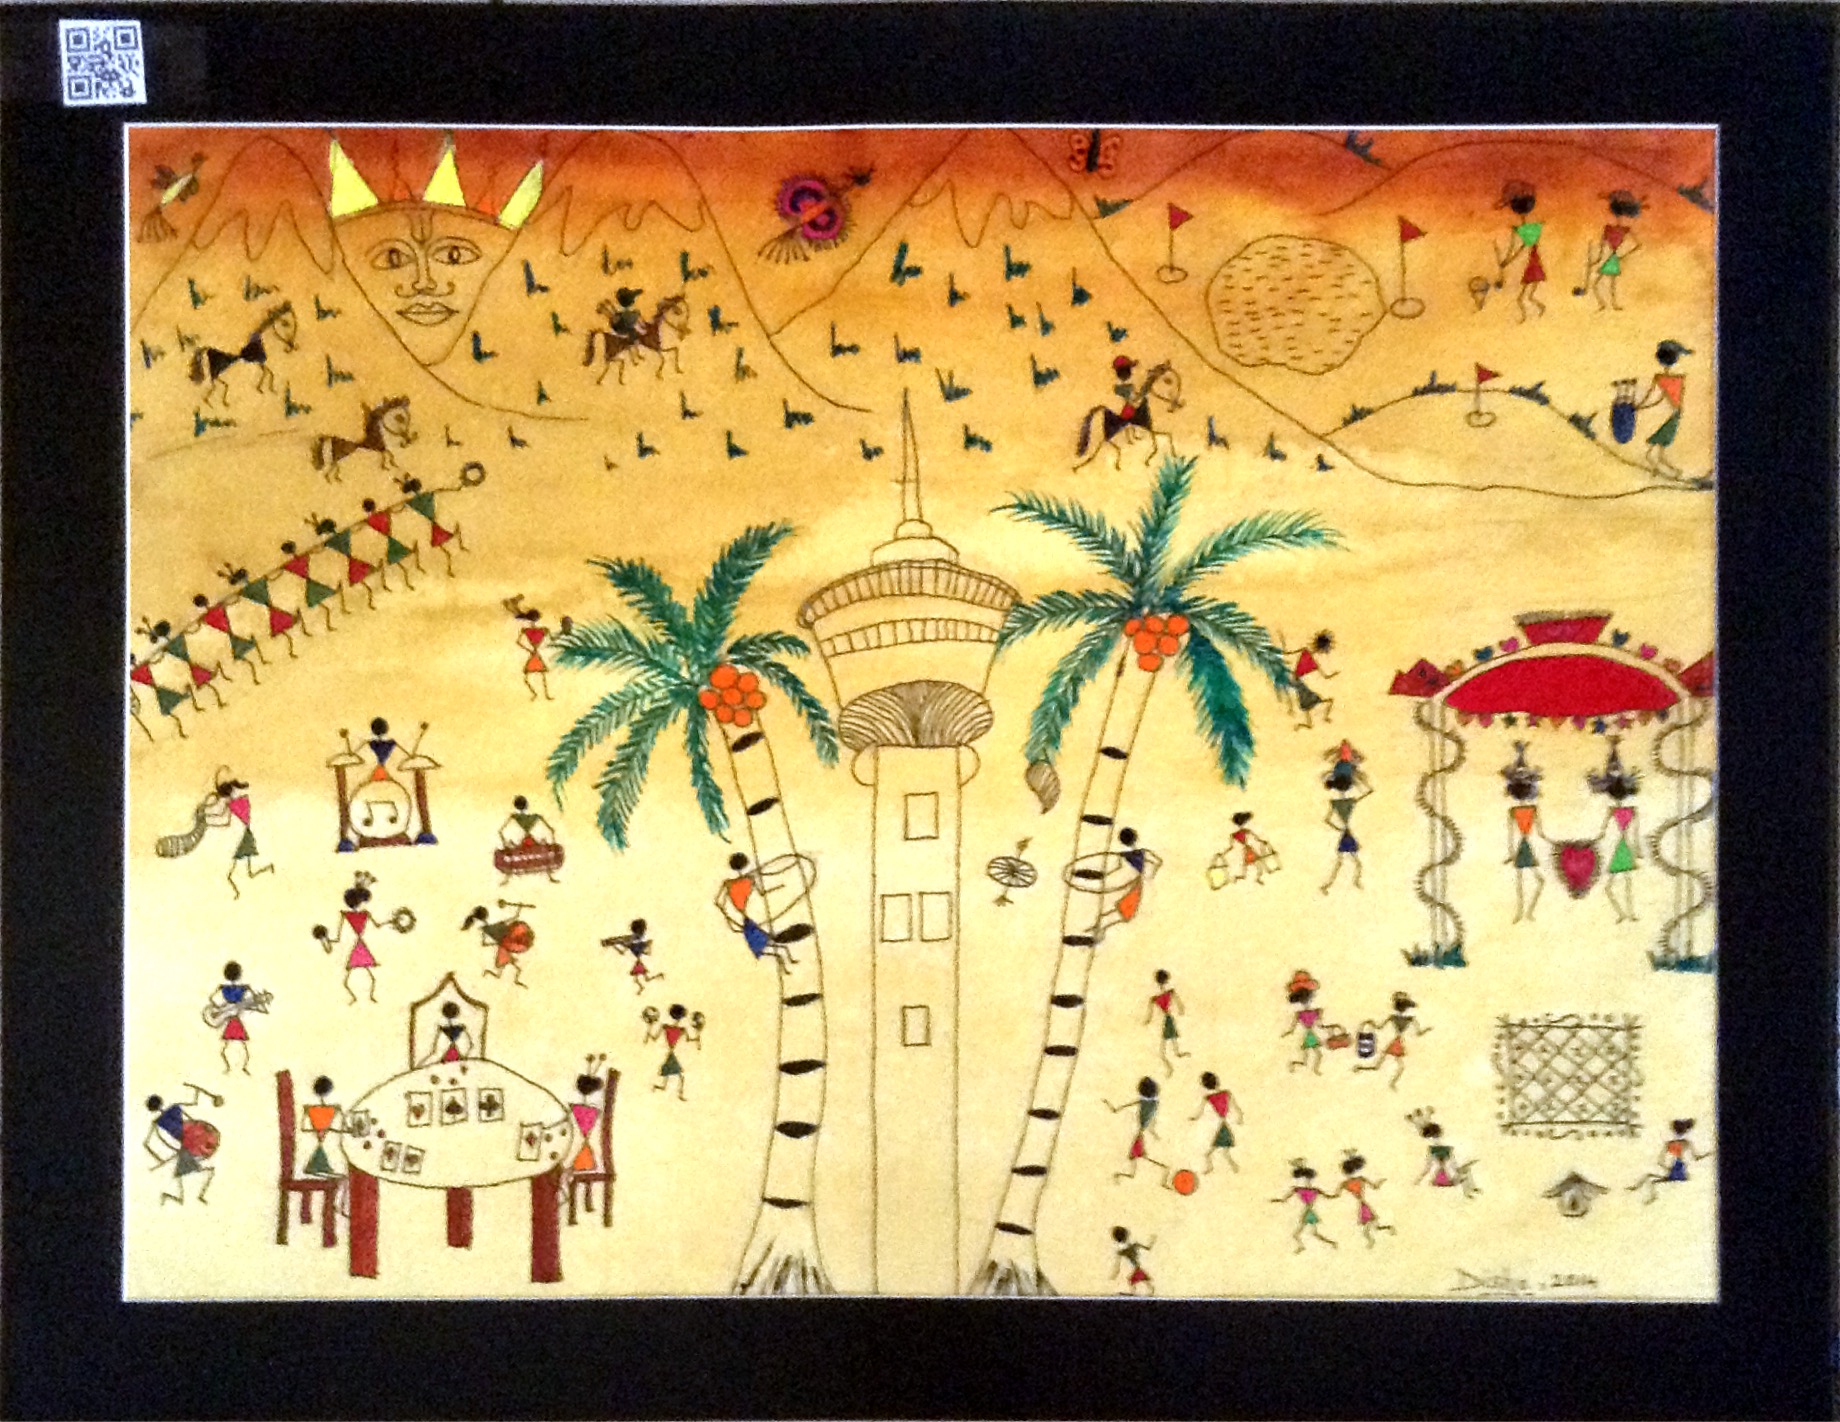 Disha. 2014